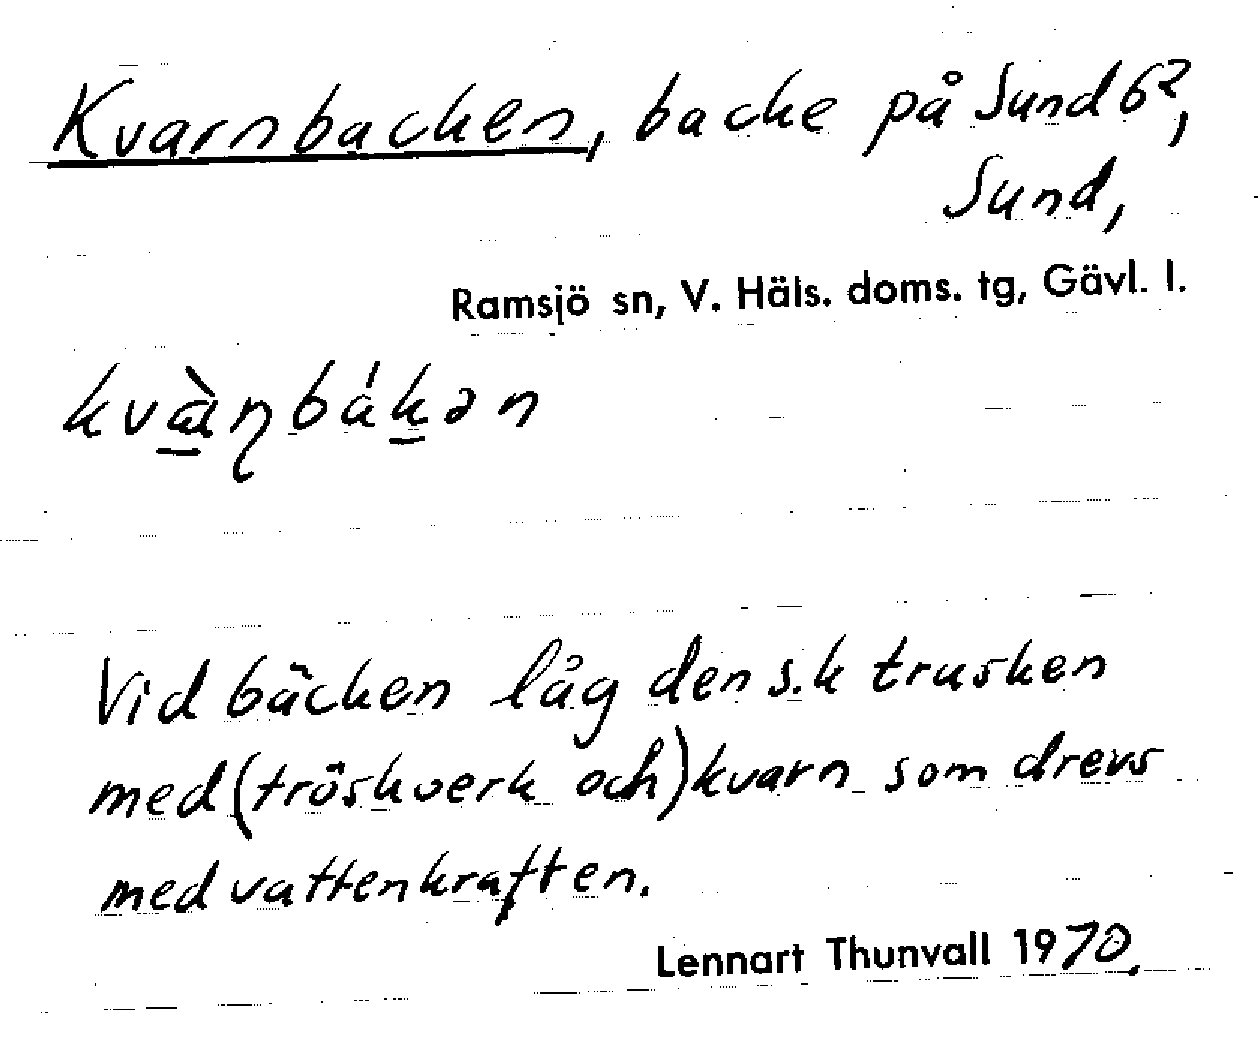 Kvarnbacken, backe på Sund 6²,
Sund,
Ramsjö sn, V. Häls. doms. tg, Gävl. l.
kvὰɳbákən
Vid bäcken låg den s.k trusken
med (tröskverk och) kvarn som drevs
med vattenkraften.
Lennart Thunvall 1970.